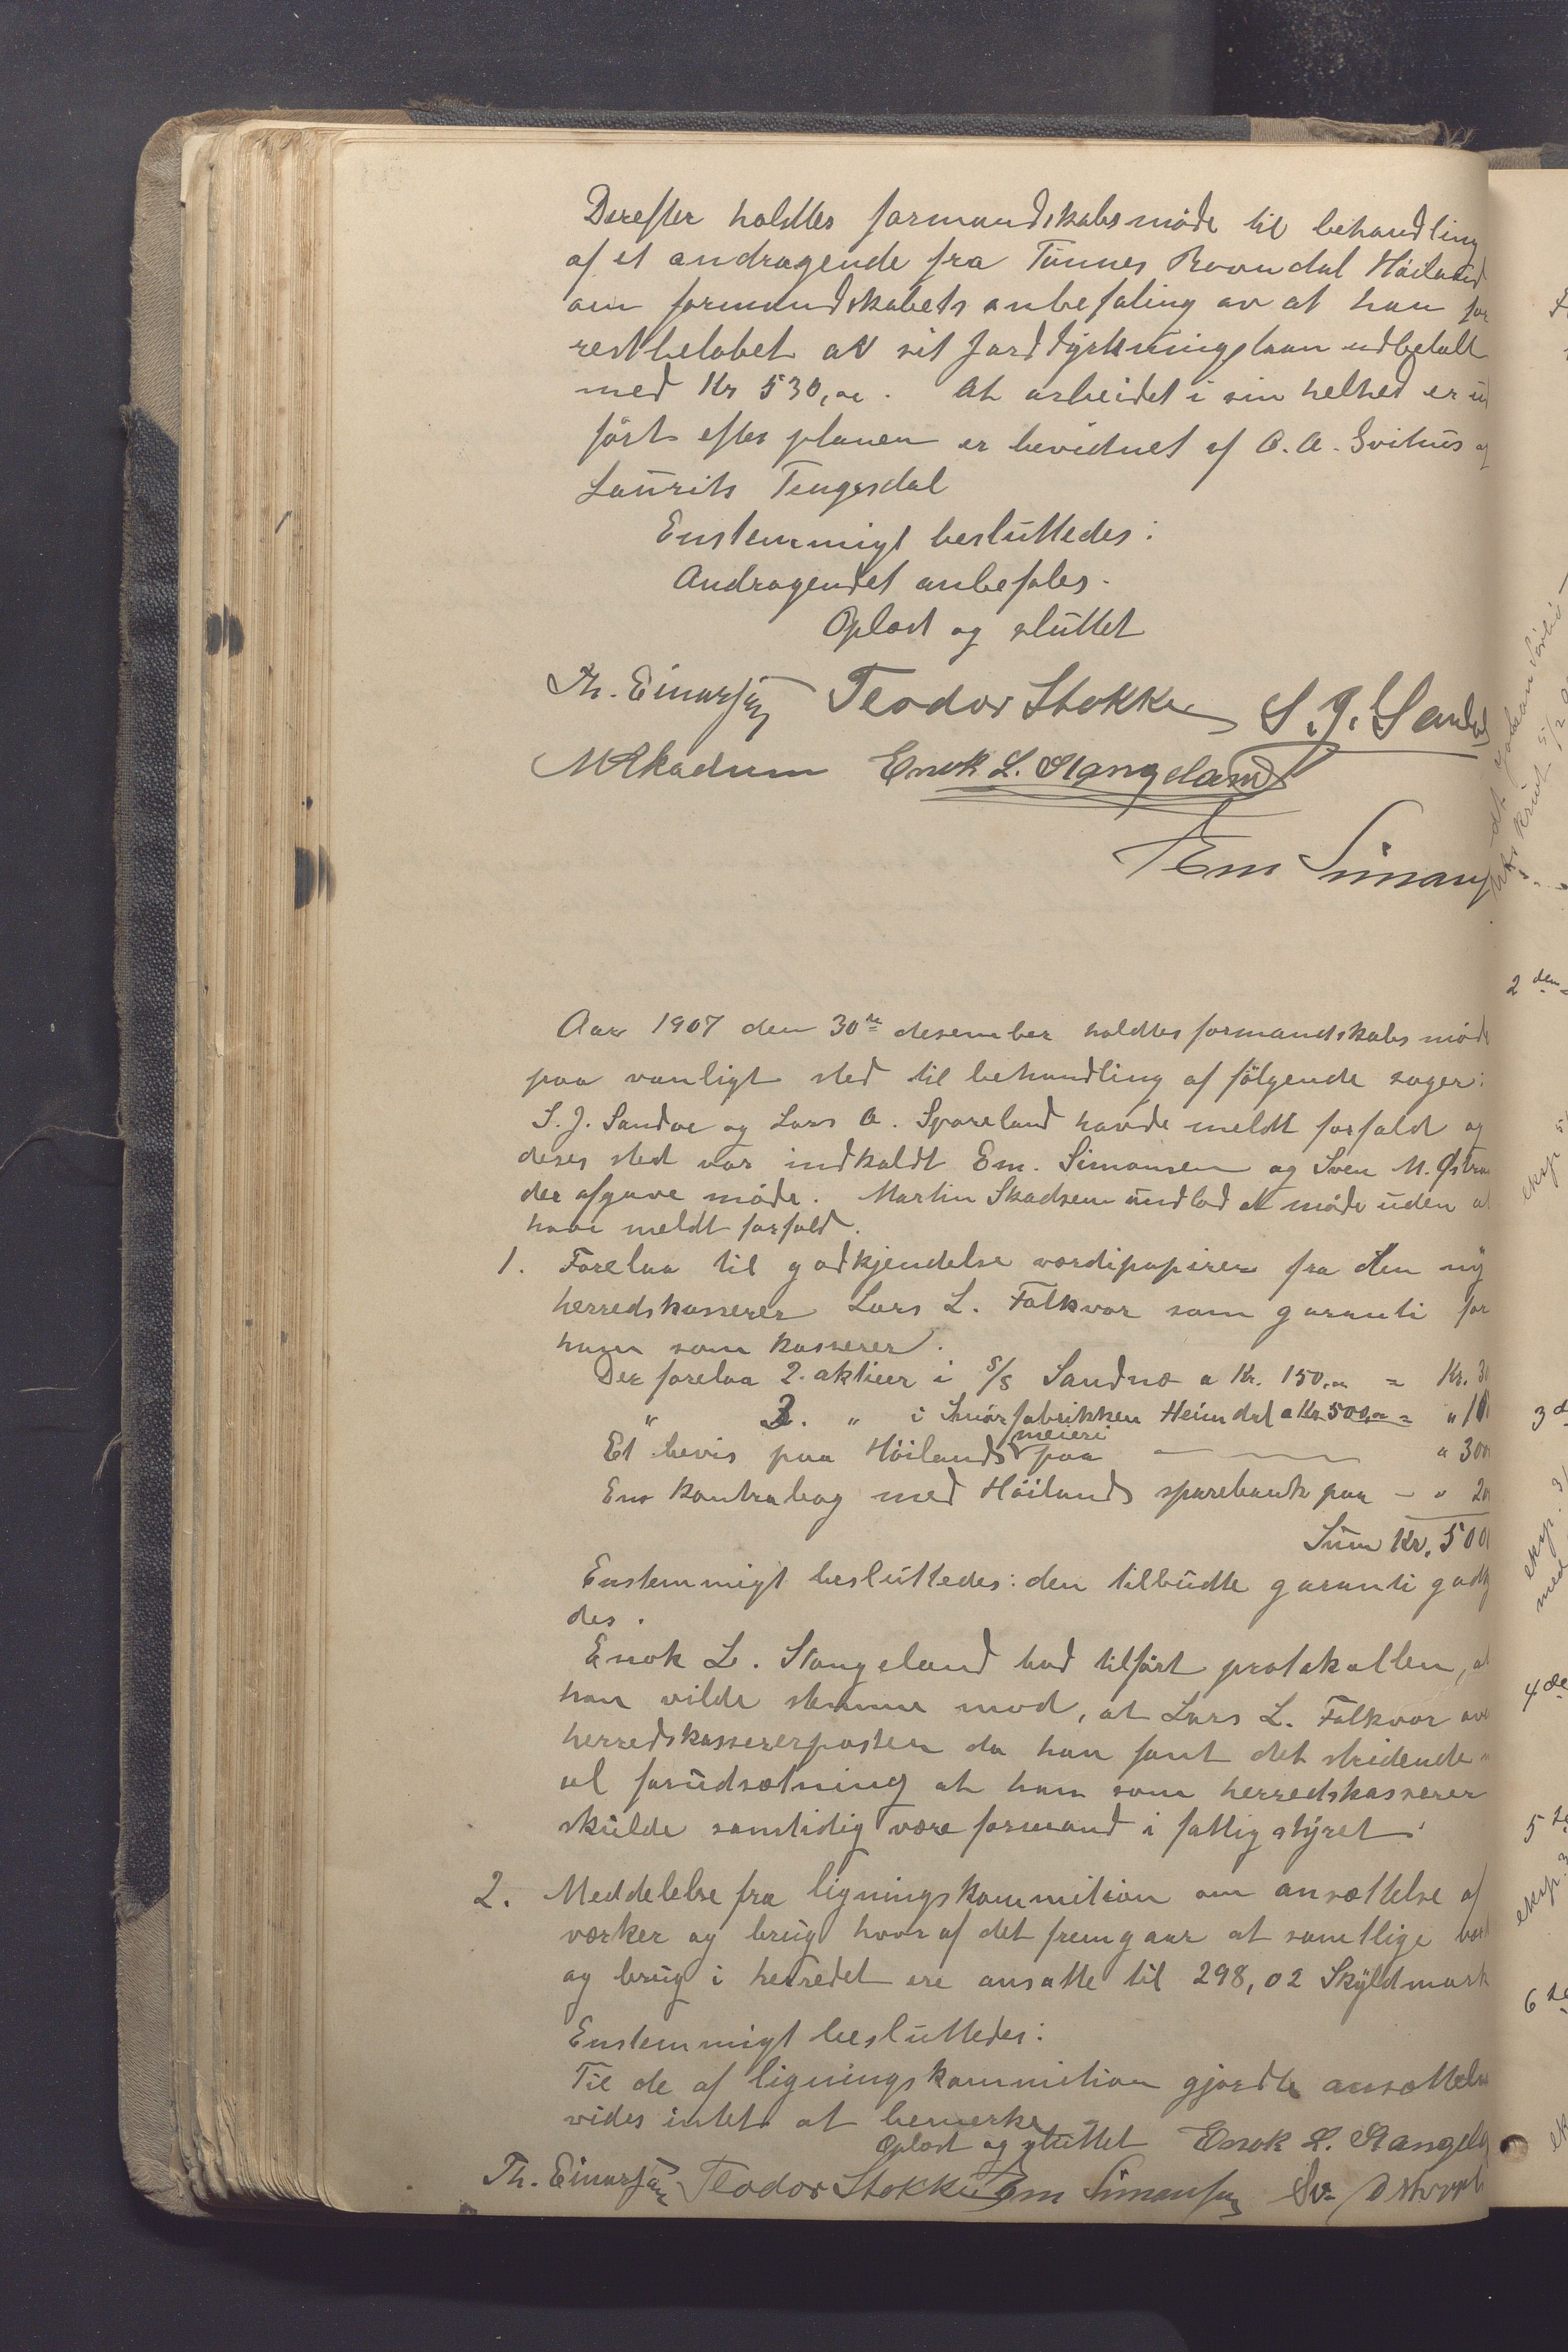 Derefter holdtes formandskabsmöde til behandling
af et andragende fra Tönnes Rovndal Höiland
om formandskabets anbefaling av at han for
restbelöbet av sit Jorddyrkningslaan udbetalt
med Kr 530,oo. At arbeidet i sin helhed er ud
fört efter planen er bevidnet af O. A. Svihus og
Laurits Tengesdal
Enstemmigt besluttedes:
Andragendet anbefales.
Oplæst og sluttet
Th. Einarsen Teodor Stokke S. J. Sandve
M Skadsem Enok L. Stangeland
Em Simons
Aar 1907 den 30te desember holdtes formandskabsmöde
paa vanligt sted til behandling af fölgende sager:
S. J. Sandve og Lars A. Spareland havde meldt forfald og
deres sted var indkaldt Em. Simonsen og Sven M.
der afgave möde. Martin Skadsem undlod at möde uden at
have meldt forfald.
1. Forelaa til godkjendelse værdipapirer fra den ny
herredskasserer Lars L. Folkvor som garanti for
ham som kasserer.
Der forelaa 2. aktier i S/S Sandnæs a Kr. 150.oo = Kr. 30
" 2. " i Smörfabrikken Heimdal a Kr. 500,oo = " 10
meieri
Et bevis paa Höilands paa — " 300
En kontrabog med Höilands sparebank paa — " 20
Sum Kr. 500
Enstemmigt besluttedes: den tilbudte garanti godkj
des.
Enok L. Stangeland bad tilfört protokollen, at
han vilde stemme mod, at Lars L. Folkvor
herredskassererposten da han fant det stridende
al forudsætning at han som herredskasserer
skulde samtidig være formand i fattigstyret.
2. Meddelelse fra ligningskommition om ansættelse af
værker og brug hvoraf det fremgaar at samtlige
og brug i herredet ere ansatte til 298,02 Skyldmark
Enstemmigt besluttedes:
Til de af ligningskommition gjordte ansættelse
vides intet at bemerke
Oplæst og sluttet Enok L. Stangela
Th. Einarsen Teodor Stokke Em Simonsen Sv.
2den
3d
4de
5te
6te